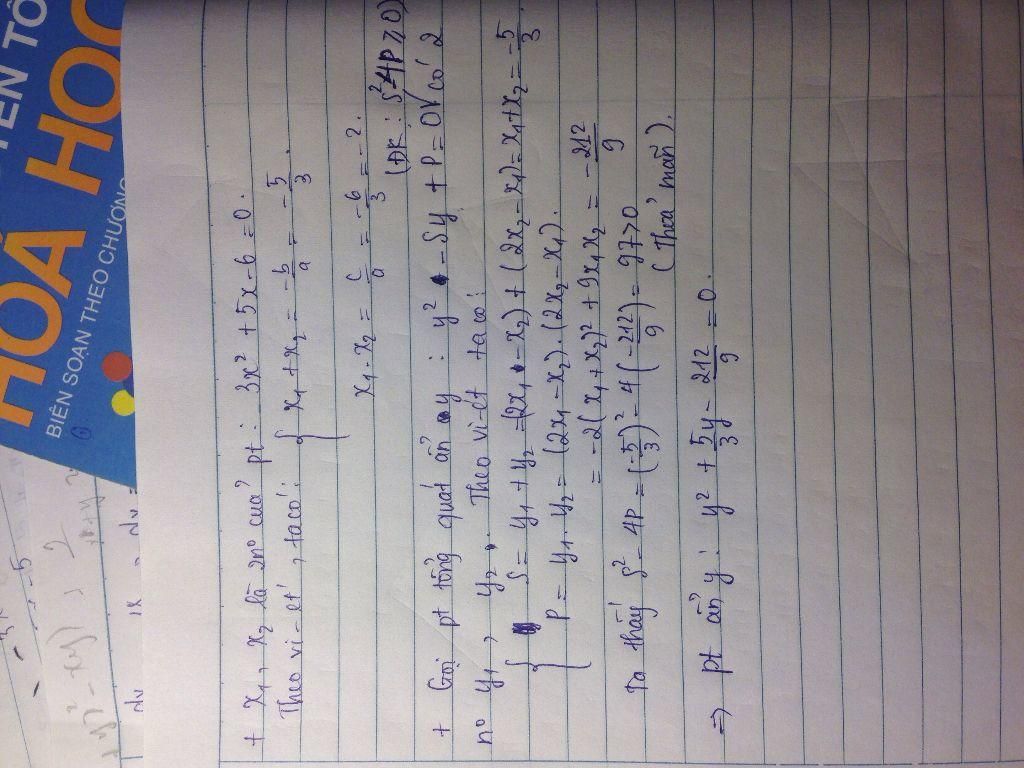 YỂN TỔ
HOÁ HỌC
BIÊN SOẠN THEO CHƯƠNG
+ x₁, x₂ là 2n⁰ của pt: 3x² + 5x - 6 = 0.
Theo vi-ét, ta có: { x₁ + x₂ = -b/a = -5/3.
x₁.x₂ = c/a = -6/3 = -2.
(ĐK: S²-4P ≥ 0)
+ Gọi pt tổng quát ẩn y: y² - Sy + P = 0 có 2
n⁰ y₁, y₂. Theo vi-ét ta có:
{ S = y₁ + y₂ = (2x₁ - x₂) + (2x₂ - x₁) = x₁ + x₂ = -5/3.
P = y₁.y₂ = (2x₁ - x₂).(2x₂ - x₁).
= -2(x₁ + x₂)² + 9x₁x₂ = -212/9
Ta thấy S² - 4P = (-5/3)² - 4(-212/9) = 97 > 0
(Thoả mãn).
⇒ pt ẩn y: y² + 5/3y - 212/9 = 0.